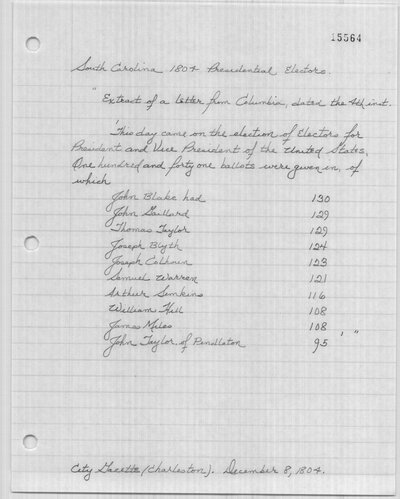 15564
South Carolina 1804 Presidential Electors.
"Extract of a letter from Columbia, dated the 4th inst.
'This day came on the election of Electors for
President and Vice President of the United States.
One hundred and forty one ballots were given in, of
which
John Blake had 130
John Gaillard 129
Thomas Taylor 129
Joseph Blyth 124
Joseph Calhoun 123
Samuel Warren 121
Arthur Simkins 116
William Hill 108
James Miles 108
John Taylor, of Pendleton 95 ' "
City Gazette (Charleston). December 8, 1804.